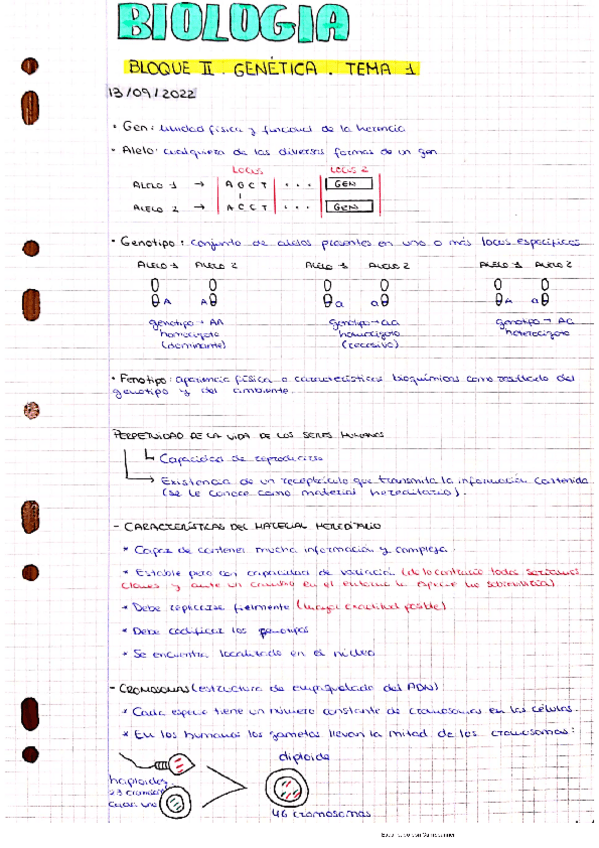 BIOLOGIA
BLOQUE II. GENÉTICA. TEMA 1
13/09/2022
· Gen: unidad física y funcional de la herencia
· Alelo: cualquiera de las diversas formas de un gen
LOCUS LOCUS 2
ALELO 1 → AGCT ... GEN
ALELO 2 → ACCT ... GEN
· Genotipo: conjunto de alelos presentes en uno o más locus específicos
ALELO 1 ALELO 2 ALELO 1 ALELO 2 ALELO 1 ALELO 2
A A a a A a
genotipo → AA genotipo → aa genotipo → Aa
homocigoto homocigoto heterocigoto
(dominante) (recesivo)
· Fenotipo: apariencia física o características bioquímicas como resultado del
genotipo y del ambiente.
PERPETUIDAD DE LA VIDA DE LOS SERES HUMANOS
Capacidad de reproducirse
Existencia de un receptáculo que transmita la información contenida
(se le conoce como material hereditario).
- CARACTERÍSTICAS DEL MATERIAL HEREDITARIO
* Capaz de contener mucha información y compleja.
* Estable pero con capacidad de variación (de lo contrario todos seríamos
clones y ante un cambio en el entorno la especie no sobreviviría)
* Debe replicarse fielmente (mayor exactitud posible)
* Debe codificar los fenotipos
* Se encuentra localizado en el núcleo
- CROMOSOMAS (estructura de empaquetado del ADN)
* Cada especie tiene un número constante de cromosomas en las células.
* En los humanos los gametos llevan la mitad de los cromosomas:
diploide
haploides
23 cromosomas
cada uno
46 cromosomas
Escaneado con CamScanner